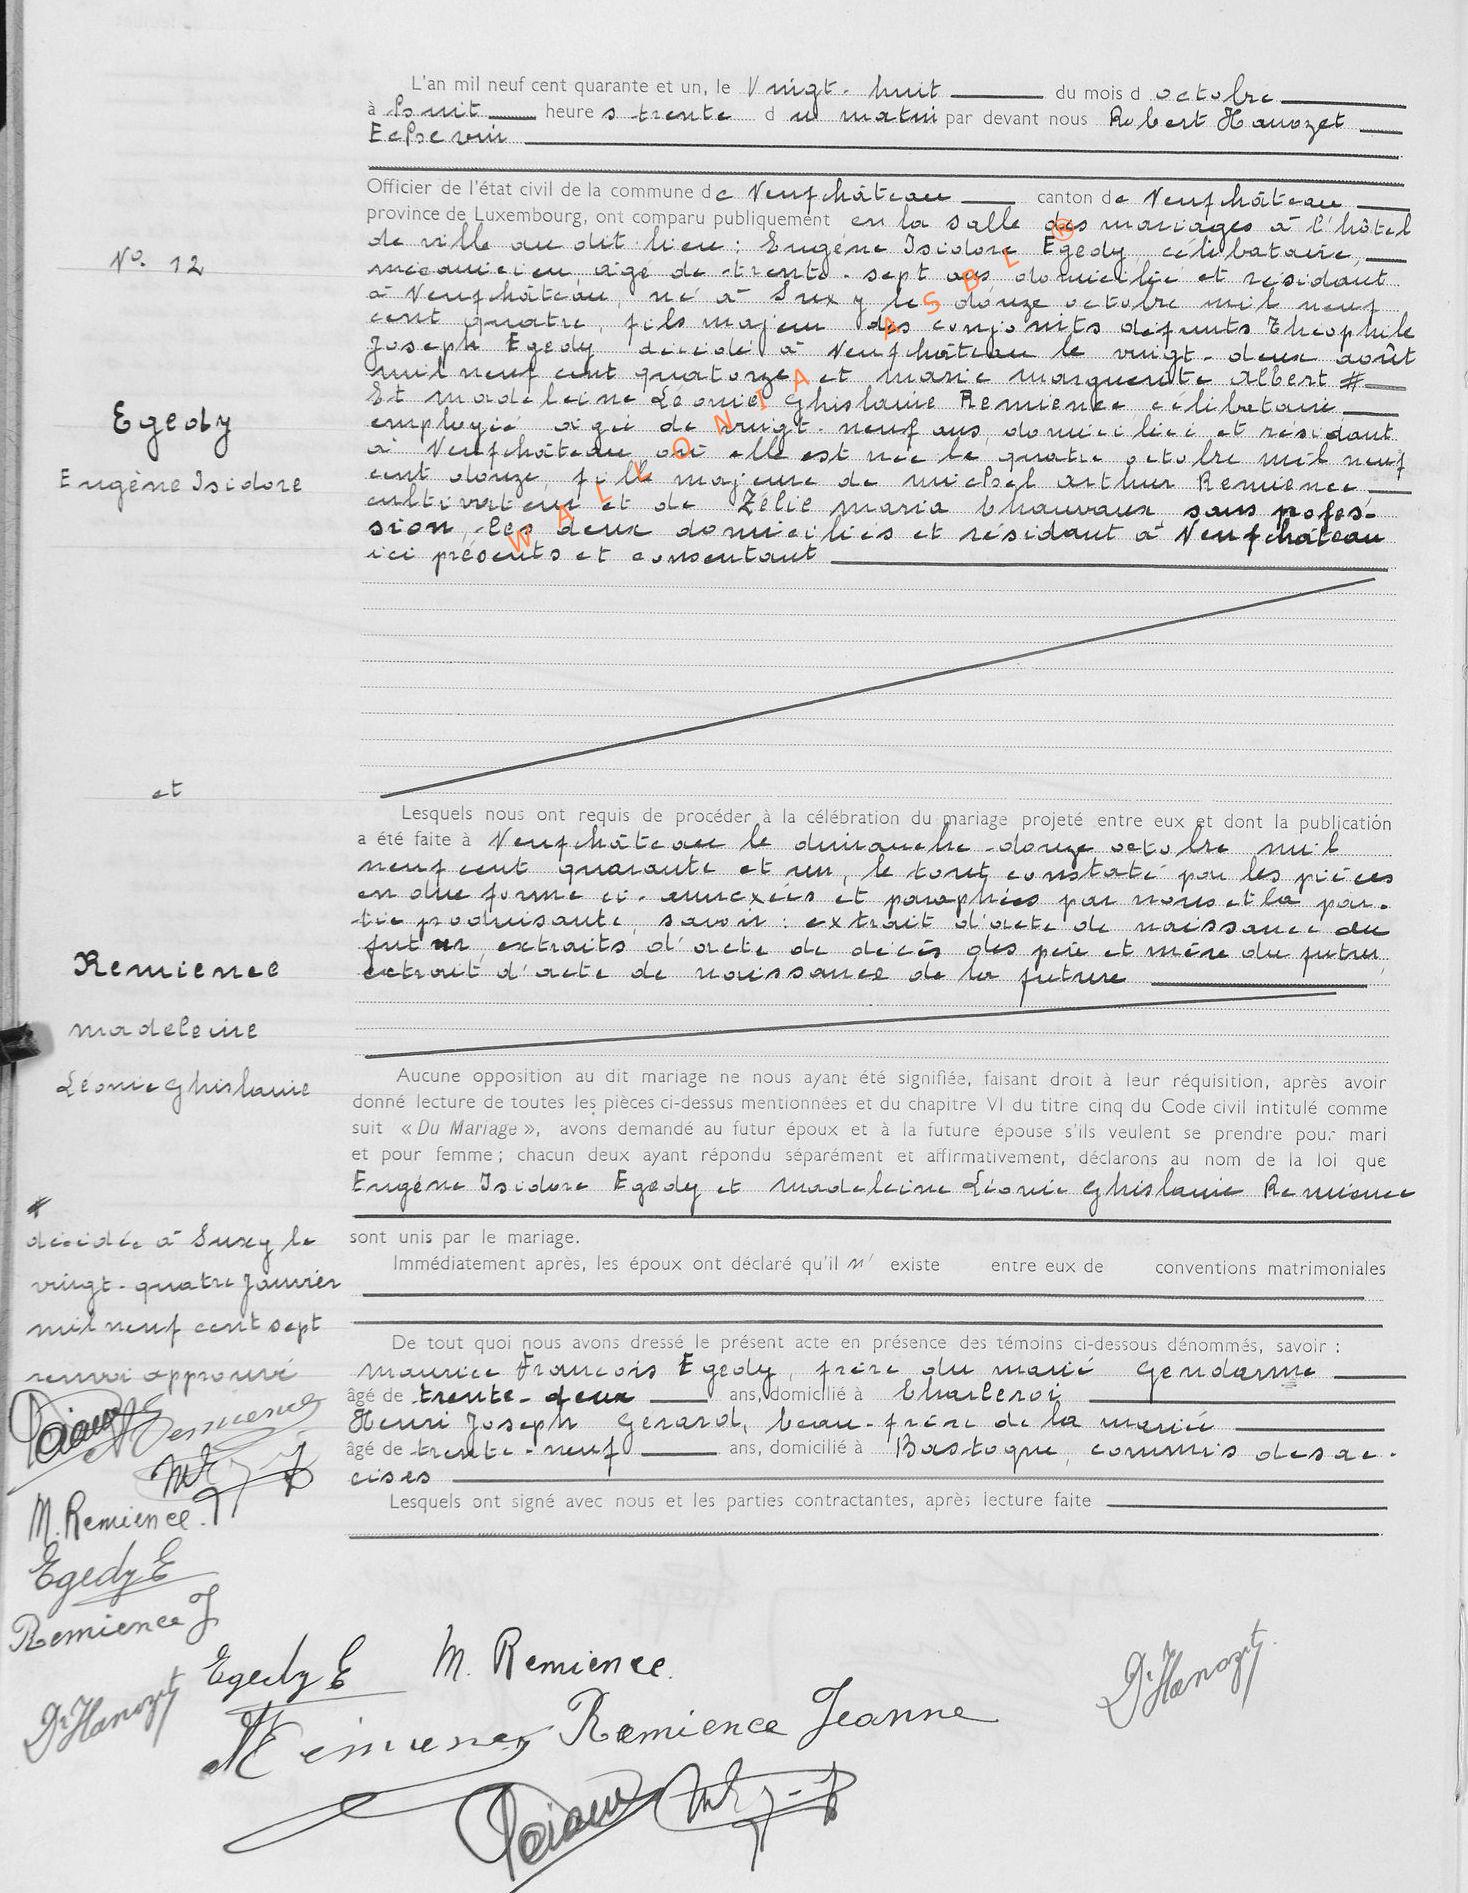 L'an mil neuf cent quarante et un, le Vingt-huit du mois d octobre
à huit heure s trente d u matin par devant nous Robert Hanozet
Echevin
Officier de l'état civil de la commune de Neufchâteau canton de Neufchâteau
province de Luxembourg, ont comparu publiquement en la salle des mariages à l'hôtel
de ville au dit lieu : Eugène Isidore Egedy, célibataire,
N° 12
mécanicien âgé de trente-sept ans domicilié et résidant
à Neufchâteau, né à Suxy le douze octobre mil neuf
cent quatre, fils majeur des conjoints défunts Théophile
Joseph Egedy décédé à Neufchâteau le vingt-deux août
mil neuf cent quatorze et Marie Marguerite Albert #
Et Madeleine Léonie Ghislaine Remience célibataire
Egedy
employée âgée de vingt-neuf ans, domiciliée et résidant
à Neufchâteau où elle est née le quatre octobre mil neuf
Eugène Isidore
cent douze, fille majeure de Michel Arthur Remience
cultivateur et de Zélie Maria Chauvaux sans profes-
sion, les deux domiciliés et résidant à Neufchâteau
ici présents et consentant
WALLONIA ASBL ®
et
Lesquels nous ont requis de procéder à la célébration du mariage projeté entre eux et dont la publication
a été faite à Neufchâteau le dimanche douze octobre mil
neuf cent quarante et un, le tout constaté par les pièces
en due forme ci-annexées et paraphées par nous et la par-
tie produisante, savoir : extrait d'acte de naissance du
futur, extraits d'acte de décès des père et mère du futur,
Remience
extrait d'acte de naissance de la future
Madeleine
Léonie Ghislaine
Aucune opposition au dit mariage ne nous ayant été signifiée, faisant droit à leur réquisition, après avoir
donné lecture de toutes les pièces ci-dessus mentionnées et du chapitre VI du titre cinq du Code civil intitulé comme
suit « Du Mariage », avons demandé au futur époux et à la future épouse s'ils veulent se prendre pour mari
et pour femme ; chacun deux ayant répondu séparément et affirmativement, déclarons au nom de la loi que
Eugène Isidore Egedy et Madeleine Léonie Ghislaine Remience
sont unis par le mariage.
#
décédée à Suxy le
vingt-quatre Janvier
mil neuf cent sept
renvoi approuvé
Immédiatement après, les époux ont déclaré qu'il n' existe entre eux de conventions matrimoniales
De tout quoi nous avons dressé le présent acte en présence des témoins ci-dessous dénommés, savoir :
Maurice François Egedy, frère du marié Gendarme
âgé de trente-deux ans, domicilié à Charleroi
Henri Joseph Gerard, beau-frère de la mariée
âgé de trente-neuf ans, domicilié à Bastogne, commis des ac-
cises
Lesquels ont signé avec nous et les parties contractantes, après lecture faite
Remience
M. Remience
Egedy E
Remience J
Dr Hanozet
Egedy E M. Remience
Dr Hanozet
Remience Remience Jeanne